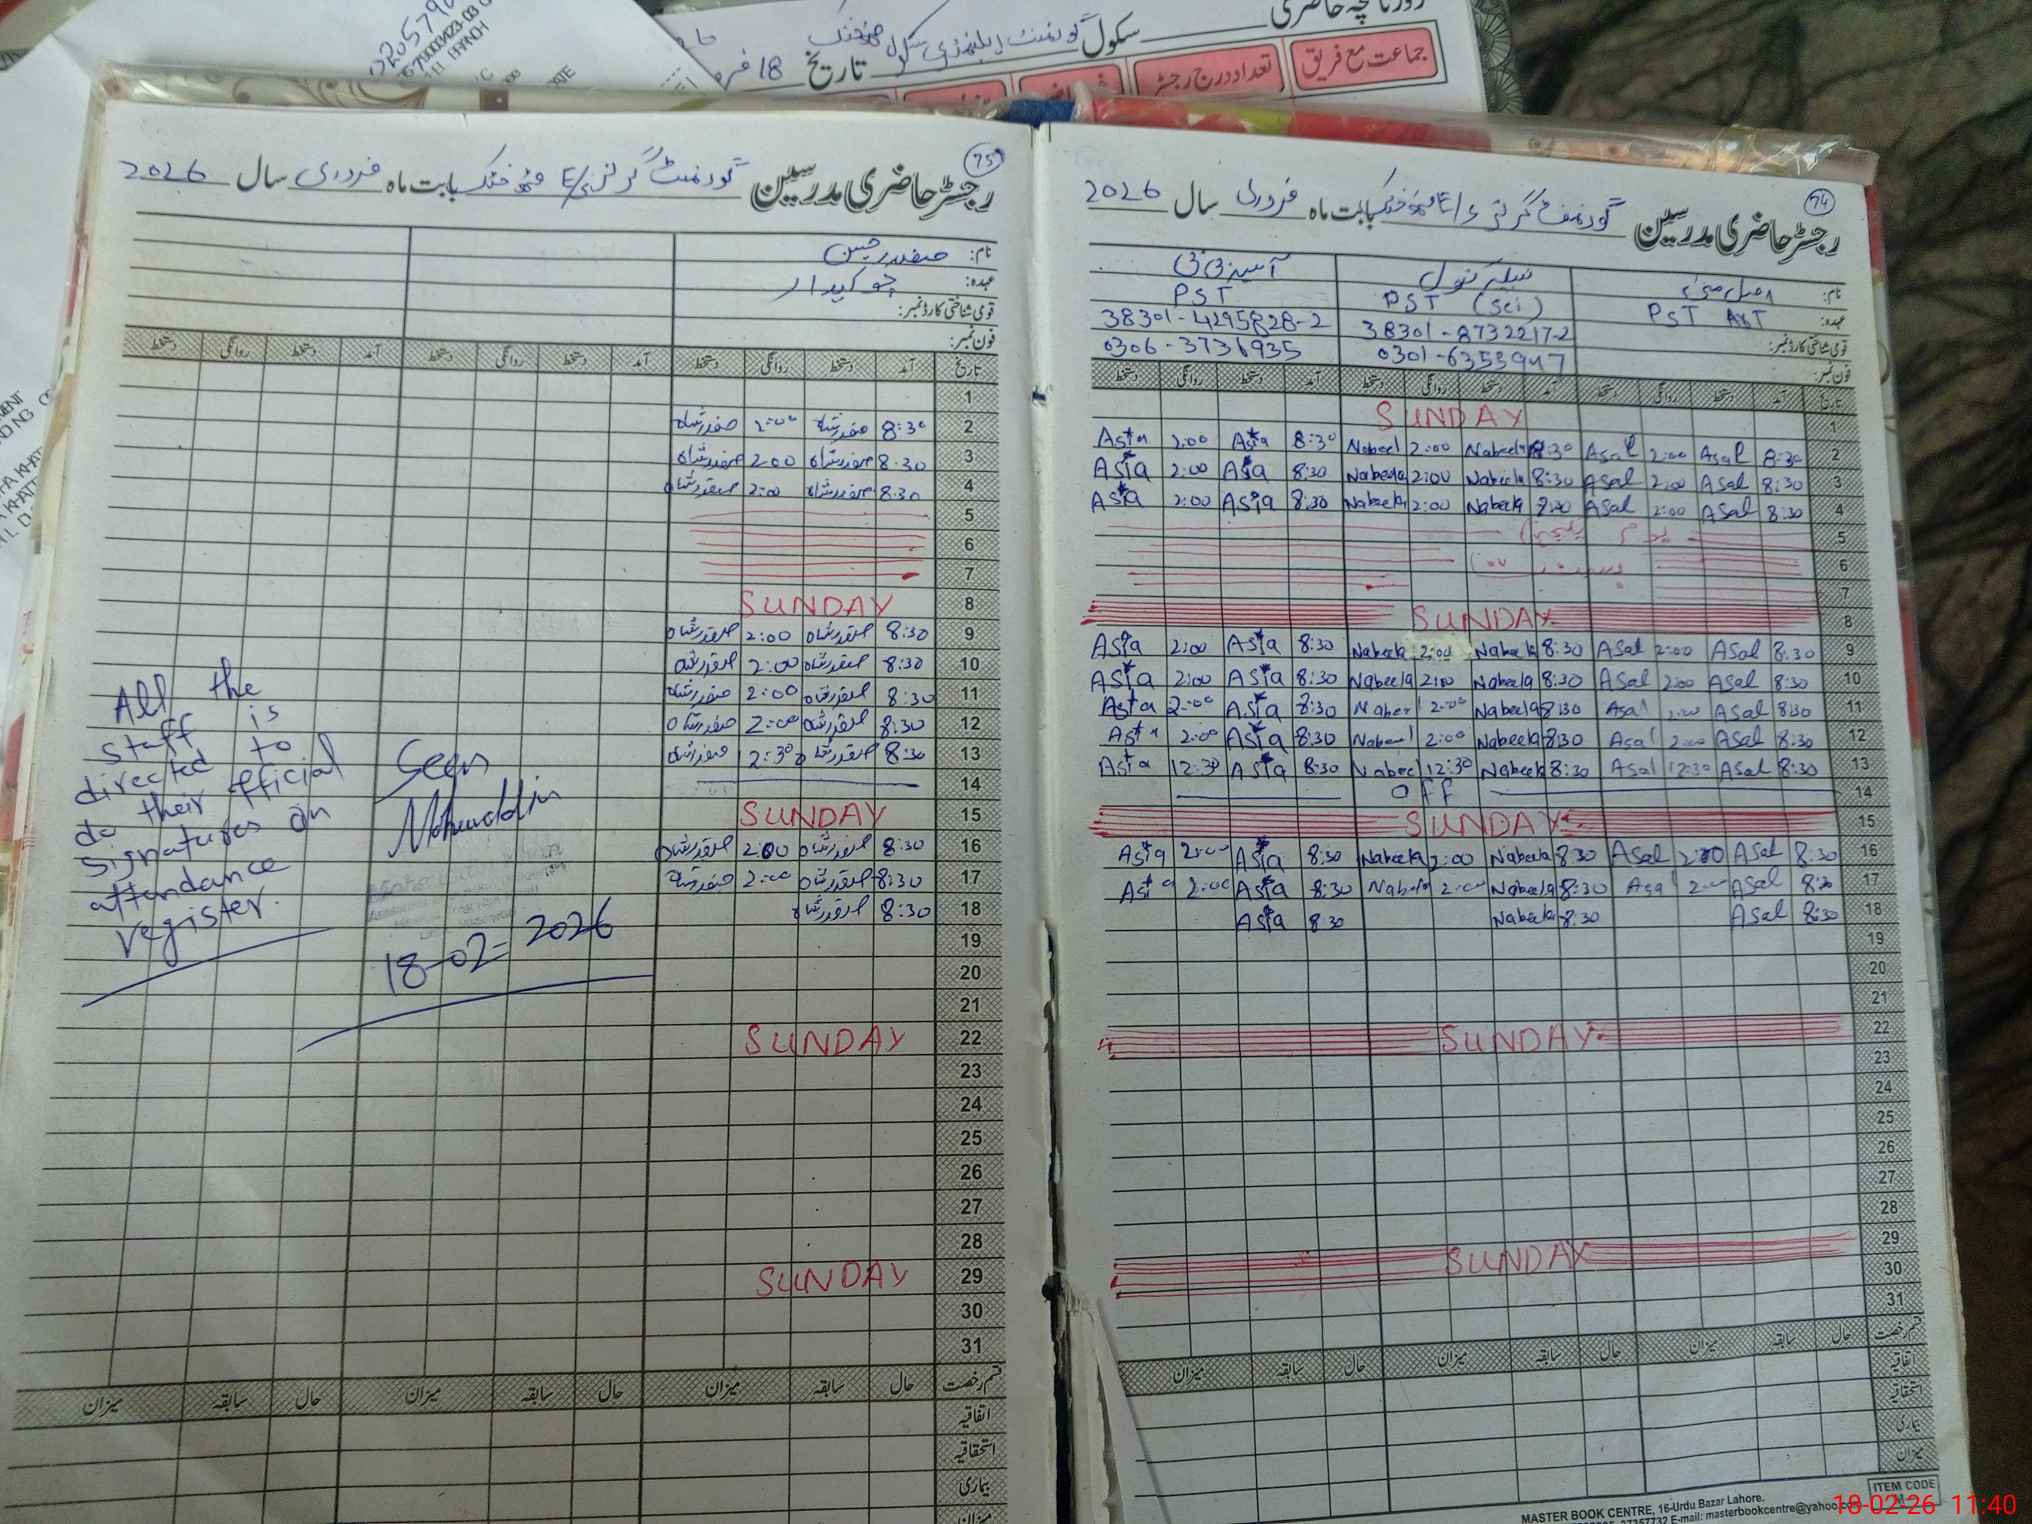 سکول گورنمنٹ ایلیمنٹری سکول
تاریخ 18
جماعت مع فریق
تعداد درج رجسٹر
74
رجسٹر حاضری مدرسین گورنمنٹ گرلز بابت ماہ فروری سال 2026
نام:
عہدہ: PST ART PST (Sci) PST
قومی شناختی کارڈ نمبر: 38301-8732217-2 38301-4295828-2
فون نمبر: 0301-6353947 0306-3736935
تاریخ آمد دستخط روانگی دستخط آمد دستخط روانگی دستخط آمد دستخط روانگی دستخط
1 SUNDAY
2 8:30 Asal 2:00 Asal 8:30 Nabeela 2:00 Nabeel 8:30 Asia 2:00 Asia
3 8:30 Asal 2:00 Asal 8:30 Nabeela 2:00 Nabeela 8:30 Asia 2:00 Asia
4 8:30 Asal 2:00 Asal 8:30 Nabeela 2:00 Nabeela 8:30 Asia 2:00 Asia
5
6
7
8 SUNDAY
9 8:30 Asal 2:00 Asal 8:30 Nabeela 2:00 Nabeela 8:30 Asia 2:00 Asia
10 8:30 Asal 2:00 Asal 8:30 Nabeela 2:00 Nabeela 8:30 Asia 2:00 Asia
11 8:30 Asal 2:00 Asal 8:30 Nabeela 2:00 8:30 Asia 2:00 Asia
12 8:30 Asal 2:00 Asal 8:30 Nabeela 2:00 8:30 Asia 2:00 Asia
13 8:30 Asal 12:30 Asal 8:30 Nabeela 12:30 Nabeel 8:30 Asia 12:30 Asia
14 off
15 SUNDAY
16 8:30 Asal 2:00 Asal 8:30 Nabeela 2:00 Nabeela 8:30 Asia 2:00 Asia
17 8:30 Asal 2:00 Asal 8:30 Nabeela 2:00 Nabeela 8:30 Asia 2:00 Asia
18 8:30 Asal 8:30 Nabeela 8:30 Asia
19
20
21
22 SUNDAY
23
24
25
26
27
28
29 SUNDAY
30
31
قسم رخصت حال سابقہ میزان حال سابقہ میزان حال سابقہ میزان
اتفاقیہ
استحقاقیہ
بیماری
میزان
ITEM CODE
MASTER BOOK CENTRE, 16-Urdu Bazar Lahore.
E-mail: masterbookcentre@yahoo.co
75
رجسٹر حاضری مدرسین گورنمنٹ گرلز بابت ماہ فروری سال 2026
نام: صفدر حسین
عہدہ: چوکیدار
قومی شناختی کارڈ نمبر:
فون نمبر:
تاریخ آمد دستخط روانگی دستخط آمد دستخط روانگی دستخط آمد دستخط روانگی دستخط
1
2 8:30 صفدر شاہ 2:00 صفدر شاہ
3 8:30 صفدر شاہ 2:00 صفدر شاہ
4 8:30 صفدر شاہ 2:00 صفدر شاہ
5
6
7
8 SUNDAY
9 8:30 صفدر شاہ 2:00 صفدر شاہ
10 8:30 صفدر شاہ 2:00 صفدر شاہ
11 8:30 صفدر شاہ 2:00 صفدر شاہ
12 8:30 صفدر شاہ 2:00 صفدر شاہ
13 8:30 صفدر شاہ 12:30 صفدر شاہ
14
15 SUNDAY
16 8:30 صفدر شاہ 2:00 صفدر شاہ
17 8:30 صفدر شاہ 2:00 صفدر شاہ
18 8:30 صفدر شاہ
19
20
21
22 SUNDAY
23
24
25
26
27
28
29 SUNDAY
30
31
قسم رخصت حال سابقہ میزان حال سابقہ میزان حال سابقہ میزان
اتفاقیہ
استحقاقیہ
بیماری
میزان
All the
staff is
directed to
do their official
signatures on
attendance
register.
Seen
18-02-2026
18-02-26 11:40